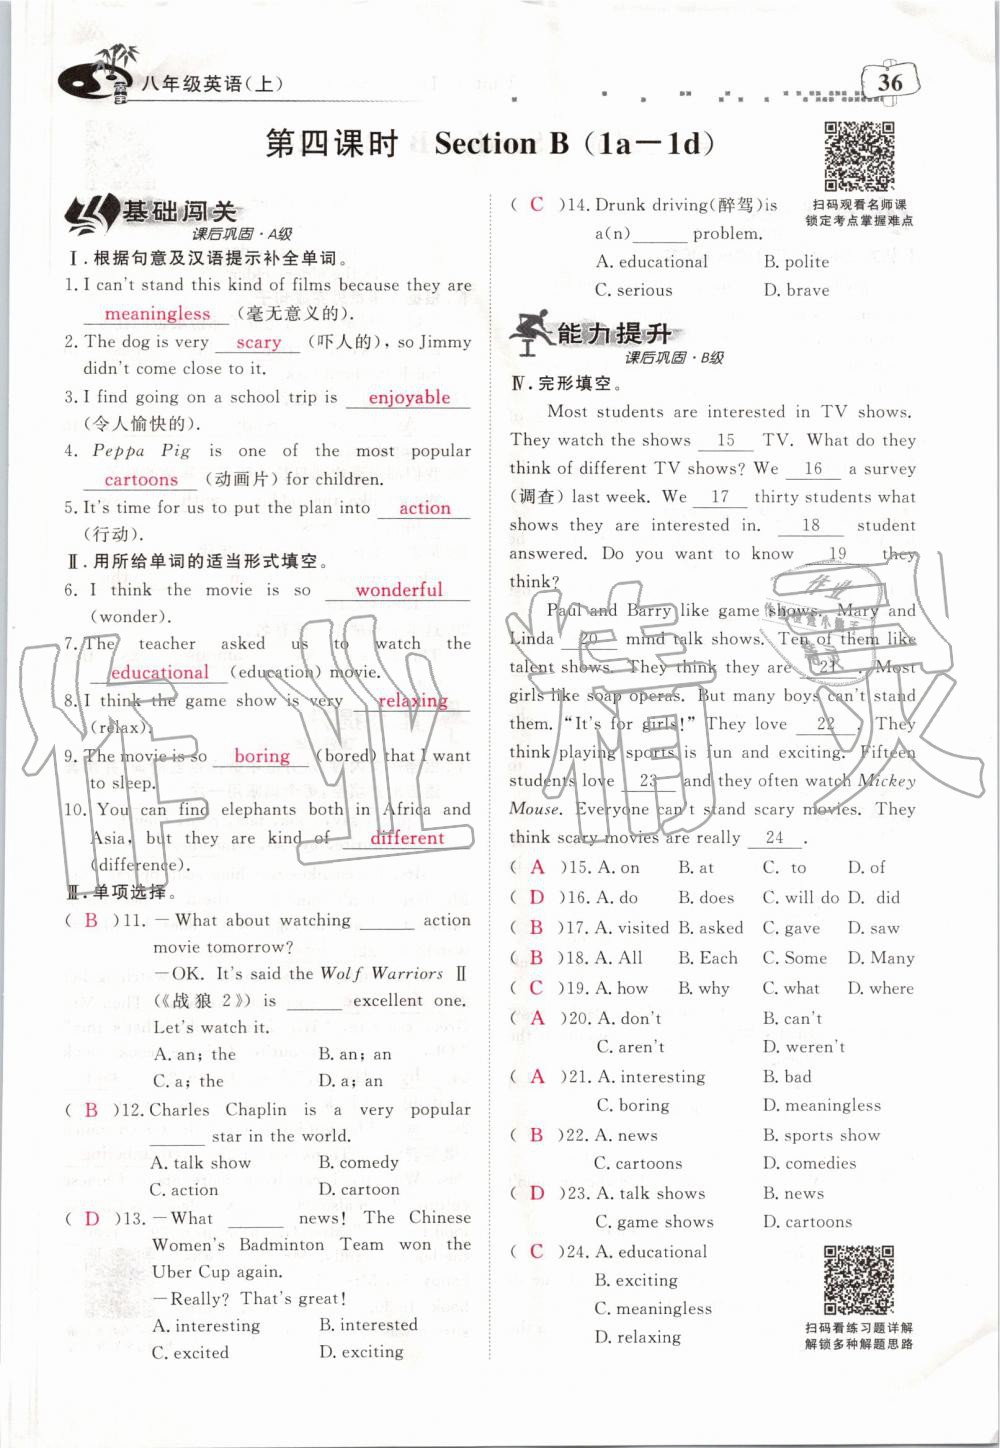 八年级英语(上)
36
第四课时 Section B (1a—1d)
基础闯关
课后巩固·A级
Ⅰ.根据句意及汉语提示补全单词。
1. I can't stand this kind of films because they are
meaningless (毫无意义的).
2. The dog is very scary (吓人的), so Jimmy
didn't come close to it.
3. I find going on a school trip is enjoyable
(令人愉快的).
4. Peppa Pig is one of the most popular
cartoons (动画片) for children.
5. It's time for us to put the plan into action
(行动).
Ⅱ.用所给单词的适当形式填空。
6. I think the movie is so wonderful
(wonder).
7. The teacher asked us to watch the
educational (education) movie.
8. I think the game show is very relaxing
(relax).
9. The movie is so boring (bored) that I want
to sleep.
10. You can find elephants both in Africa and
Asia, but they are kind of different
(difference).
Ⅲ.单项选择。
( B )11. —What about watching ______ action
movie tomorrow?
—OK. It's said the Wolf Warriors Ⅱ
(《战狼 2》) is ______ excellent one.
Let's watch it.
A. an; the B. an; an
C. a; the D. a; an
( B )12. Charles Chaplin is a very popular
______ star in the world.
A. talk show B. comedy
C. action D. cartoon
( D )13. —What ______ news! The Chinese
Women's Badminton Team won the
Uber Cup again.
—Really? That's great!
A. interesting B. interested
C. excited D. exciting
( C )14. Drunk driving(醉驾)is
a(n)______ problem.
A. educational B. polite
C. serious D. brave
扫码观看名师课
锁定考点掌握难点
能力提升
课后巩固·B级
Ⅳ.完形填空。
Most students are interested in TV shows.
They watch the shows 15 TV. What do they
think of different TV shows? We 16 a survey
(调查) last week. We 17 thirty students what
shows they are interested in. 18 student
answered. Do you want to know 19 they
think?
Paul and Barry like game shows. Mary and
Linda 20 mind talk shows. Ten of them like
talent shows. They think they are 21 . Most
girls like soap operas. But many boys can't stand
them. "It's for girls!" They love 22 . They
think playing sports is fun and exciting. Fifteen
students love 23 and they often watch Mickey
Mouse. Everyone can't stand scary movies. They
think scary movies are really 24 .
( A )15. A. on B. at C. to D. of
( D )16. A. do B. does C. will do D. did
( B )17. A. visited B. asked C. gave D. saw
( B )18. A. All B. Each C. Some D. Many
( C )19. A. how B. why C. what D. where
( A )20. A. don't B. can't
C. aren't D. weren't
( A )21. A. interesting B. bad
C. boring D. meaningless
( B )22. A. news B. sports show
C. cartoons D. comedies
( D )23. A. talk shows B. news
C. game shows D. cartoons
( C )24. A. educational
B. exciting
C. meaningless
D. relaxing
扫码看练习题详解
解锁多种解题思路
作业精灵